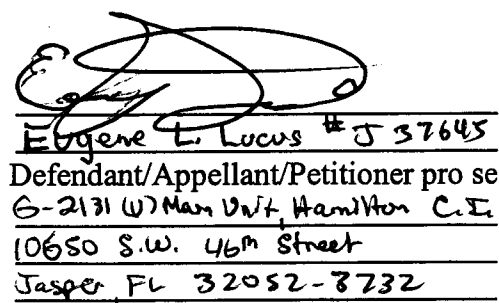 Eugene L. Lucus # J 37645
Defendant/Appellant/Petitioner pro se
G-2131 (W) Main Unit, Hamilton C.I.
10650 S.W. 46th Street
Jasper FL 32052-3732